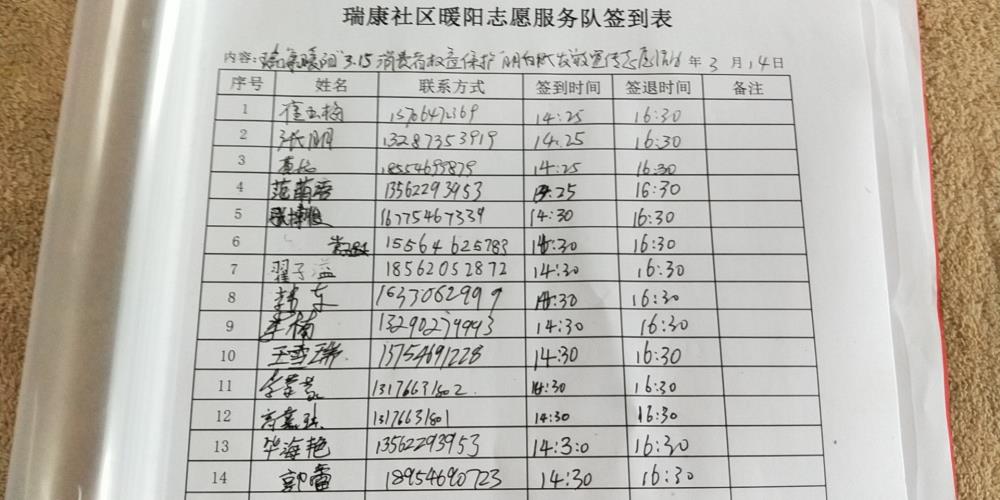 瑞康社区暖阳志愿服务队签到表
内容: 瑞康暖阳"3.15消费者权益保护 年 3 月 14 日
序号 姓名 联系方式 签到时间 签退时间 备注
1 崔玉梅 14:25 16:30
2 张朋 13287353919 14:25 16:30
3 18554699879 14:25 16:30
4 范萌 13562293953 14:25 16:30
5 16775467339 14:30 16:30
6 15564625783 14:30 16:30
7 翟子溢 18562052872 14:30 16:30
8 韩东 14:30 16:30
9 李楠 14:30 16:30
10 王雪瑞 13754691228 14:30 16:30
11 13176631802 14:30 16:30
12 13176631801 14:30 16:30
13 毕海艳 13562293953 14:3:0 16:30
14 郭雷 18954690723 14:30 16:30